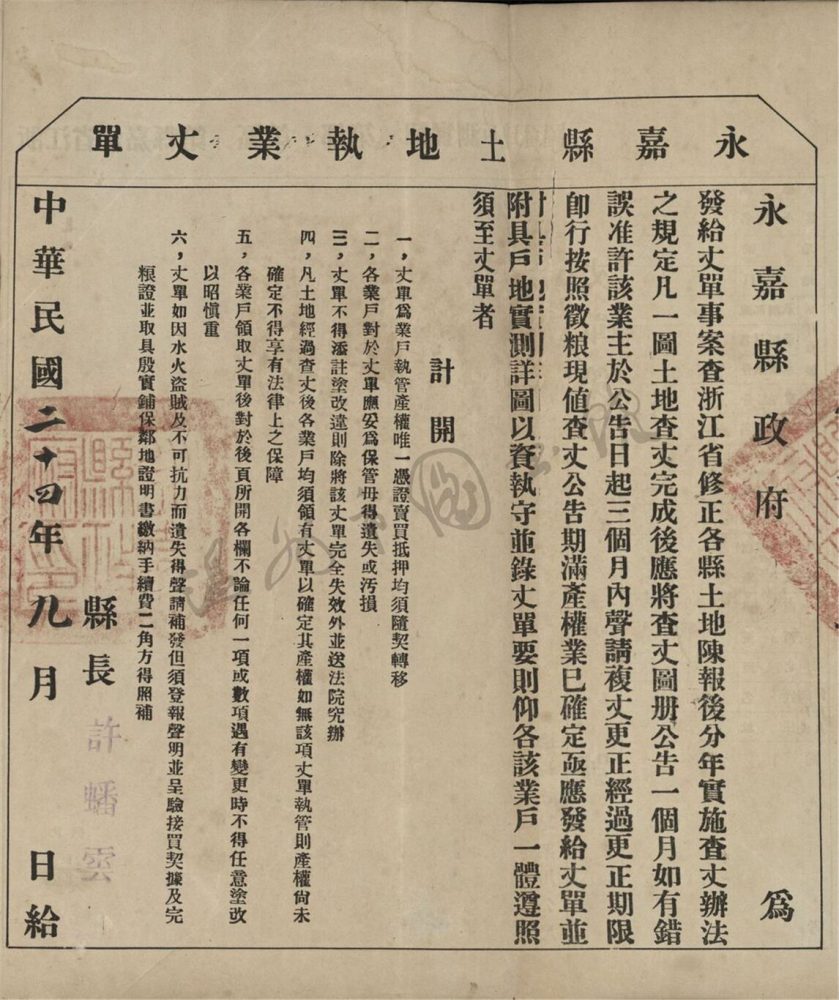 永嘉縣土地執業丈單
永嘉縣政府 為
發給丈單事案查浙江省修正各縣土地陳報後分年實施查丈辦法
之規定凡一圖土地查丈完成後應將查丈圖册公告一個月如有錯
誤准許該業主於公告日起三個月內聲請複丈更正經過更正期限
卽行按照徵粮現値查丈公告期滿產權業已確定亟應發給丈單並
附具戶地實測詳圖以資執守並錄丈單要則仰各該業戶一體遵照
須至丈單者
計開
一，丈單爲業戶執管產權唯一憑證賣買抵押均須隨契轉移
二，各業戶對於丈單應妥爲保管毋得遺失或汚損
三，丈單不得添註塗改違則除將該丈單完全失效外並送法院究辦
四，凡土地經過查丈後各業戶均須領有丈單以確定其產權如無該項丈單執管則產權尙未
確定不得享有法律上之保障
五，各業戶領取丈單後對於後頁所開各欄不論任何一項或數項遇有變更時不得任意塗改
以昭愼重
六，丈單如因水火盜賊及不可抗力而遺失得聲請補發但須登報聲明並呈驗接買契據及完
粮證並取具殷實鋪保鄰地證明書繳納手續費二角方得照補
縣長 許蟠雲
中華民國二十四年九月 日給